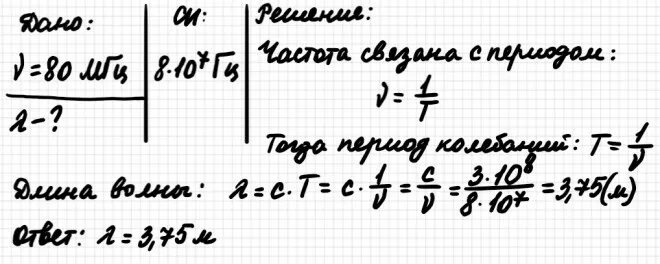 Дано:
СИ:
Решение:
ν = 80 МГц
8·10⁷ Гц
Частота связана с периодом:
ν = 1/T
λ - ?
Тогда период колебаний: T = 1/ν
Длина волны: λ = c·T = c·1/ν = c/ν = 3·10⁸/8·10⁷ = 3,75(м)
Ответ: λ = 3,75 м